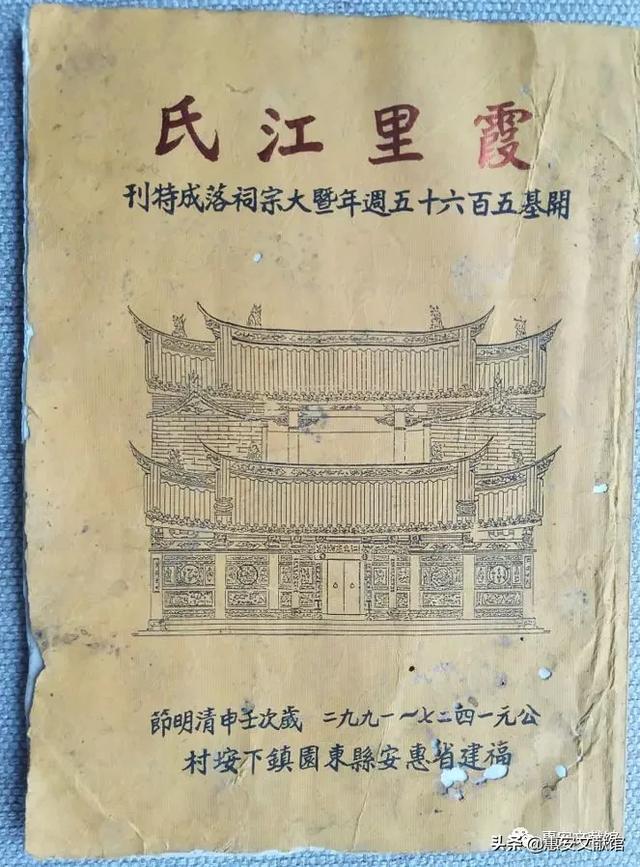 霞里江氏
開基五百六十五週年暨大宗祠落成特刊
公元一四二七～一九九二 歲次壬申清明節
福建省惠安縣東園鎮下垵村
惠安文献馆
头条 @惠安文献馆